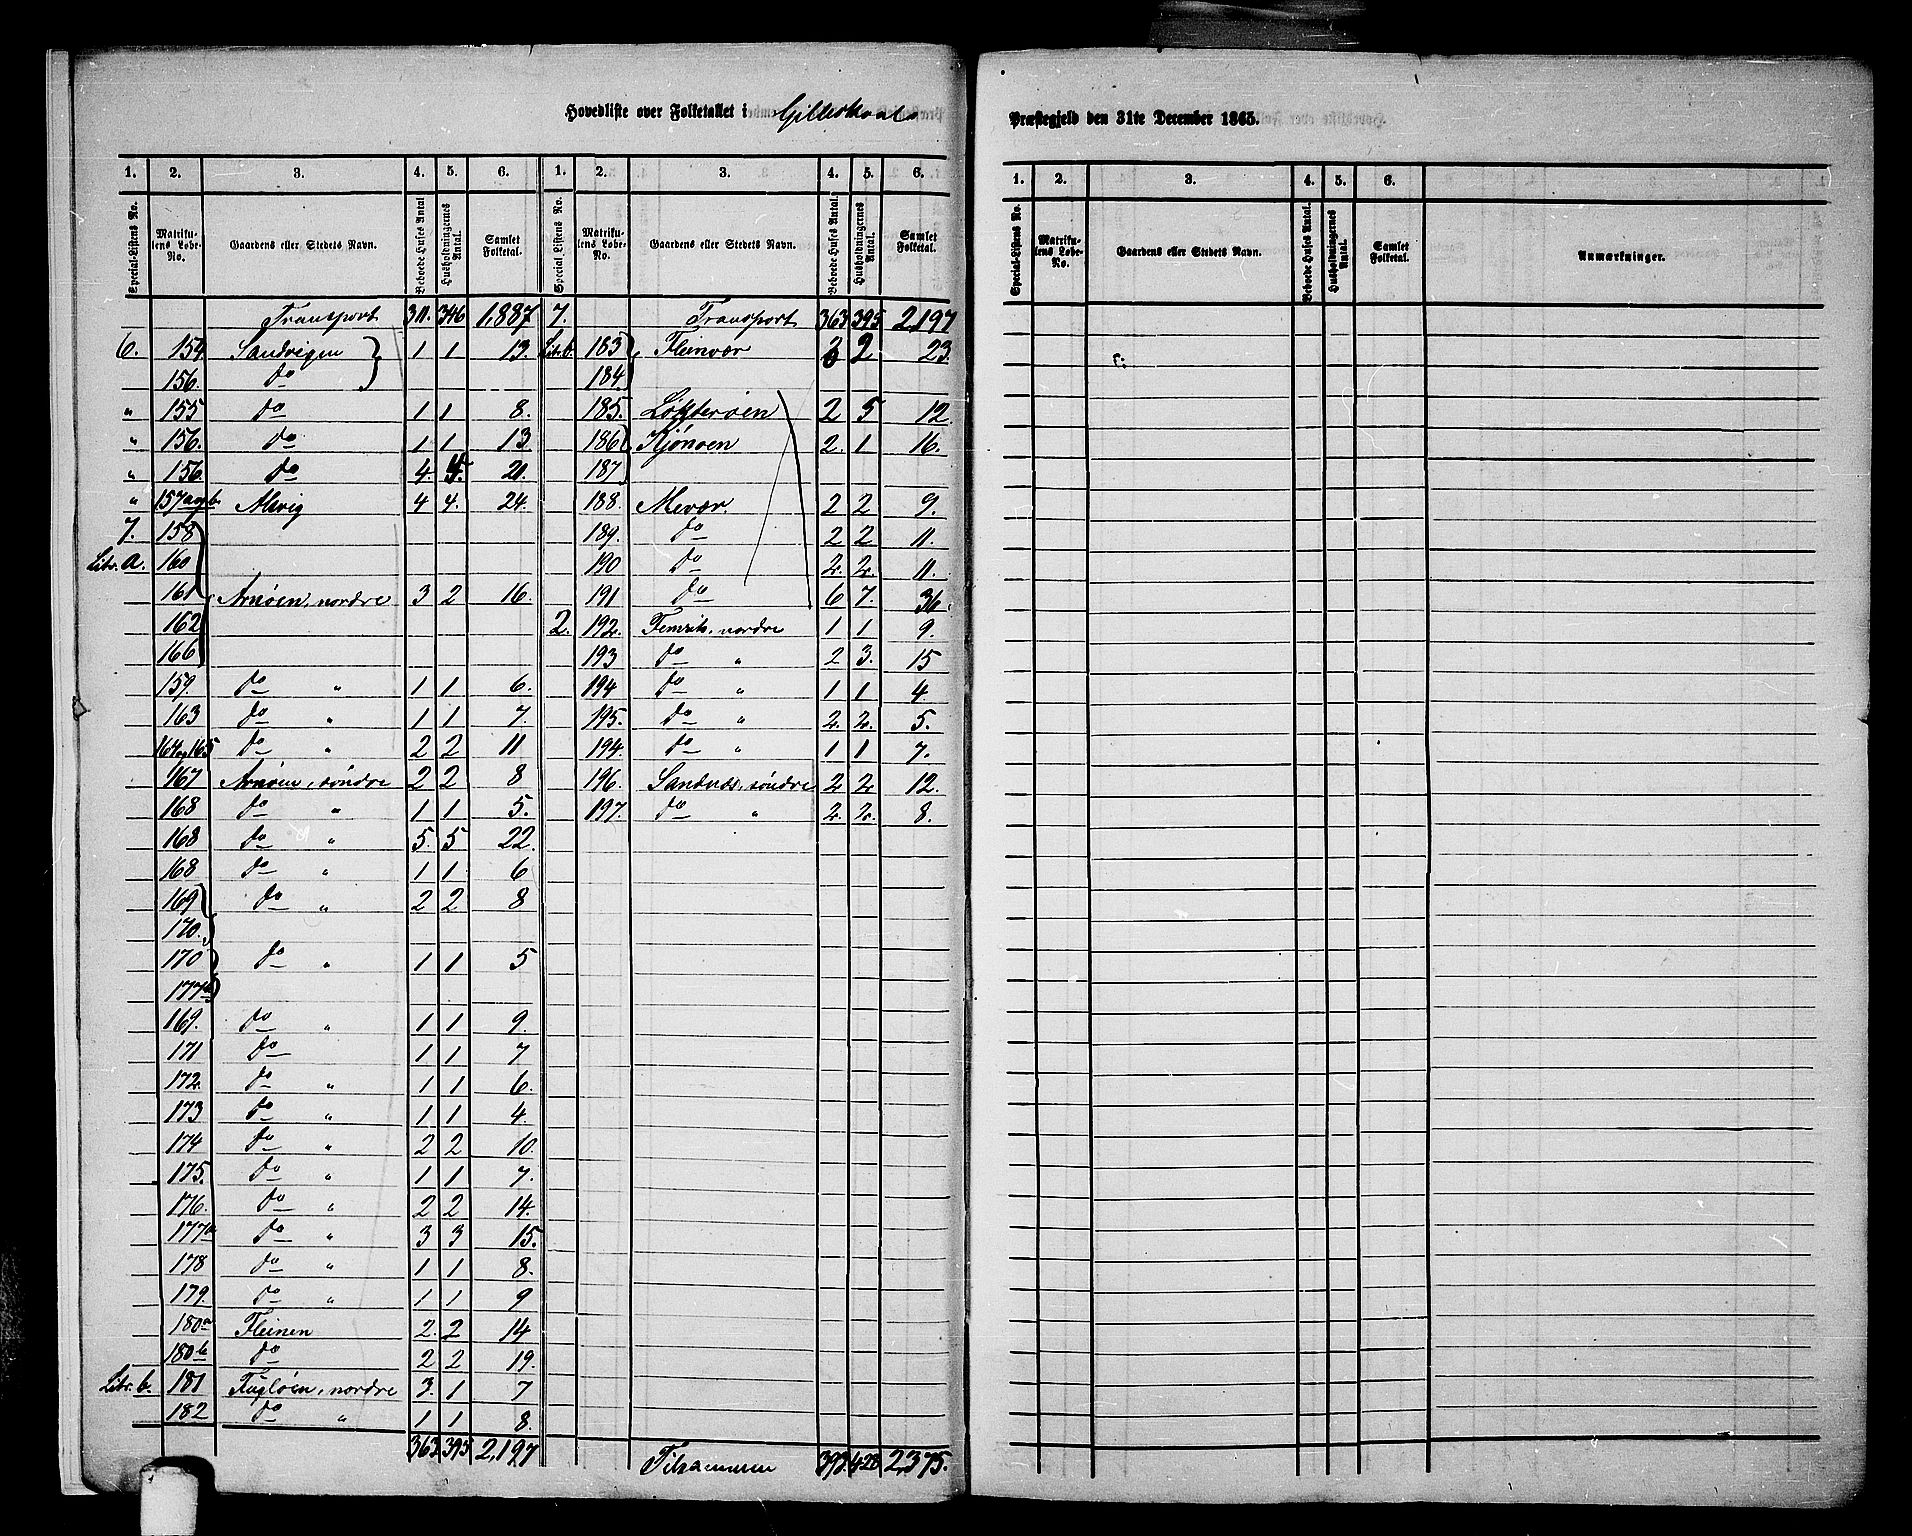 Hovedliste over Folketallet i Gilleskaals
Præstegjeld den 31te December 1865.
1. 2. 3. 4. 5. 6. 1. 2. 3. 4. 5. 6.
Special-Listens No. Matrikulens Løbe-No. Gaardens eller Stedets Navn. Beboede Huses Antal Husholdningernes Antal. Samlet Folketal. Special Listens No. Matrikulens Løbe-No. Gaardens eller Stedets Navn. Beboede Huses Antal. Husholdningernes Antal. Samlet Folketal.
Transport 311. 346 1,887
6. 154. Sandvigen 1 1 13.
156. do
" 155 do 1 1 8.
" 156. do 1 1 13.
" 156. do 4. 5. 21.
" 157 a og b. Alvig 4 4. 24.
7. 158
Litr. a. 160
161 Arnøen, nordre 3 2 16.
162
166
159. do " 1 1 6.
163 do " 1 1 7.
164 og 165 do " 2 2 11
167 Arnøen, søndre 2 2 8
168 do " 1 1 5.
168 do " 5. 5 22.
168 do " 1 1 6
169 do " 2 2 8
170.
170 do " 1 1 5
177b
169. do " 1 1 9.
171 do 1 1 7
172. do " 1 1 6.
173 do " 1 1 4.
174 do " 2 2 10.
175. do " 1 1 7.
176. do " 2 2 14.
177a do " 3 3 15.
178 do " 1 1 8.
179. do " 1 1 9
180a Fleinen 2. 2 14
180b do 2 2 19.
Litr. b. 181 Fugløen, nordre 3. 1 7
182 do " 1 1 8.
363. 395 2,197
7. Transport 363 395 2,197
Litr. b. 183 Fleinvær 2 23.
184
185. Løkterøen 2 5 12.
186 Kjønøen 2. 1 16.
187
188. Mevær. 2 2 9.
189. do 2 2 11.
190 do 2. 2. 11.
191 do 6 7. 36.
2. 192. Femris, nordre 1 1 9.
193 do " 2 3. 15
194 do " 1 1 4.
195. do " 2. 2. 5.
194. do " 1 1 7.
196. Sandnæs, søndre 2 2 12.
197. do " 2. 2. 8.
Tilsammen 393. 428 2,375.
1. 2. 3. 4. 5. 6.
Special-Listens No. Matrikulens Løbe-No. Gaardens eller Stedets Navn. Beboede Huses Antal. Husholdningernes Antal. Samlet Folketal. Anmærkninger.